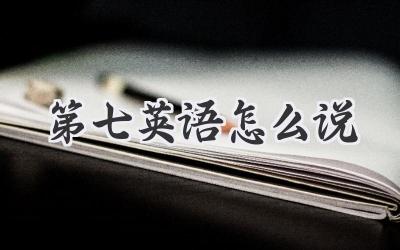 第七英语怎么说